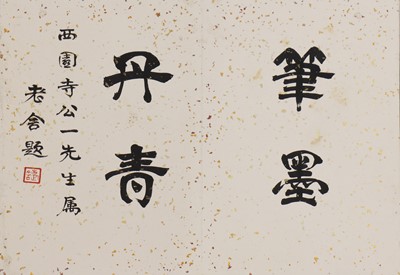 筆墨
丹青
西園寺公一先生属
老舍題